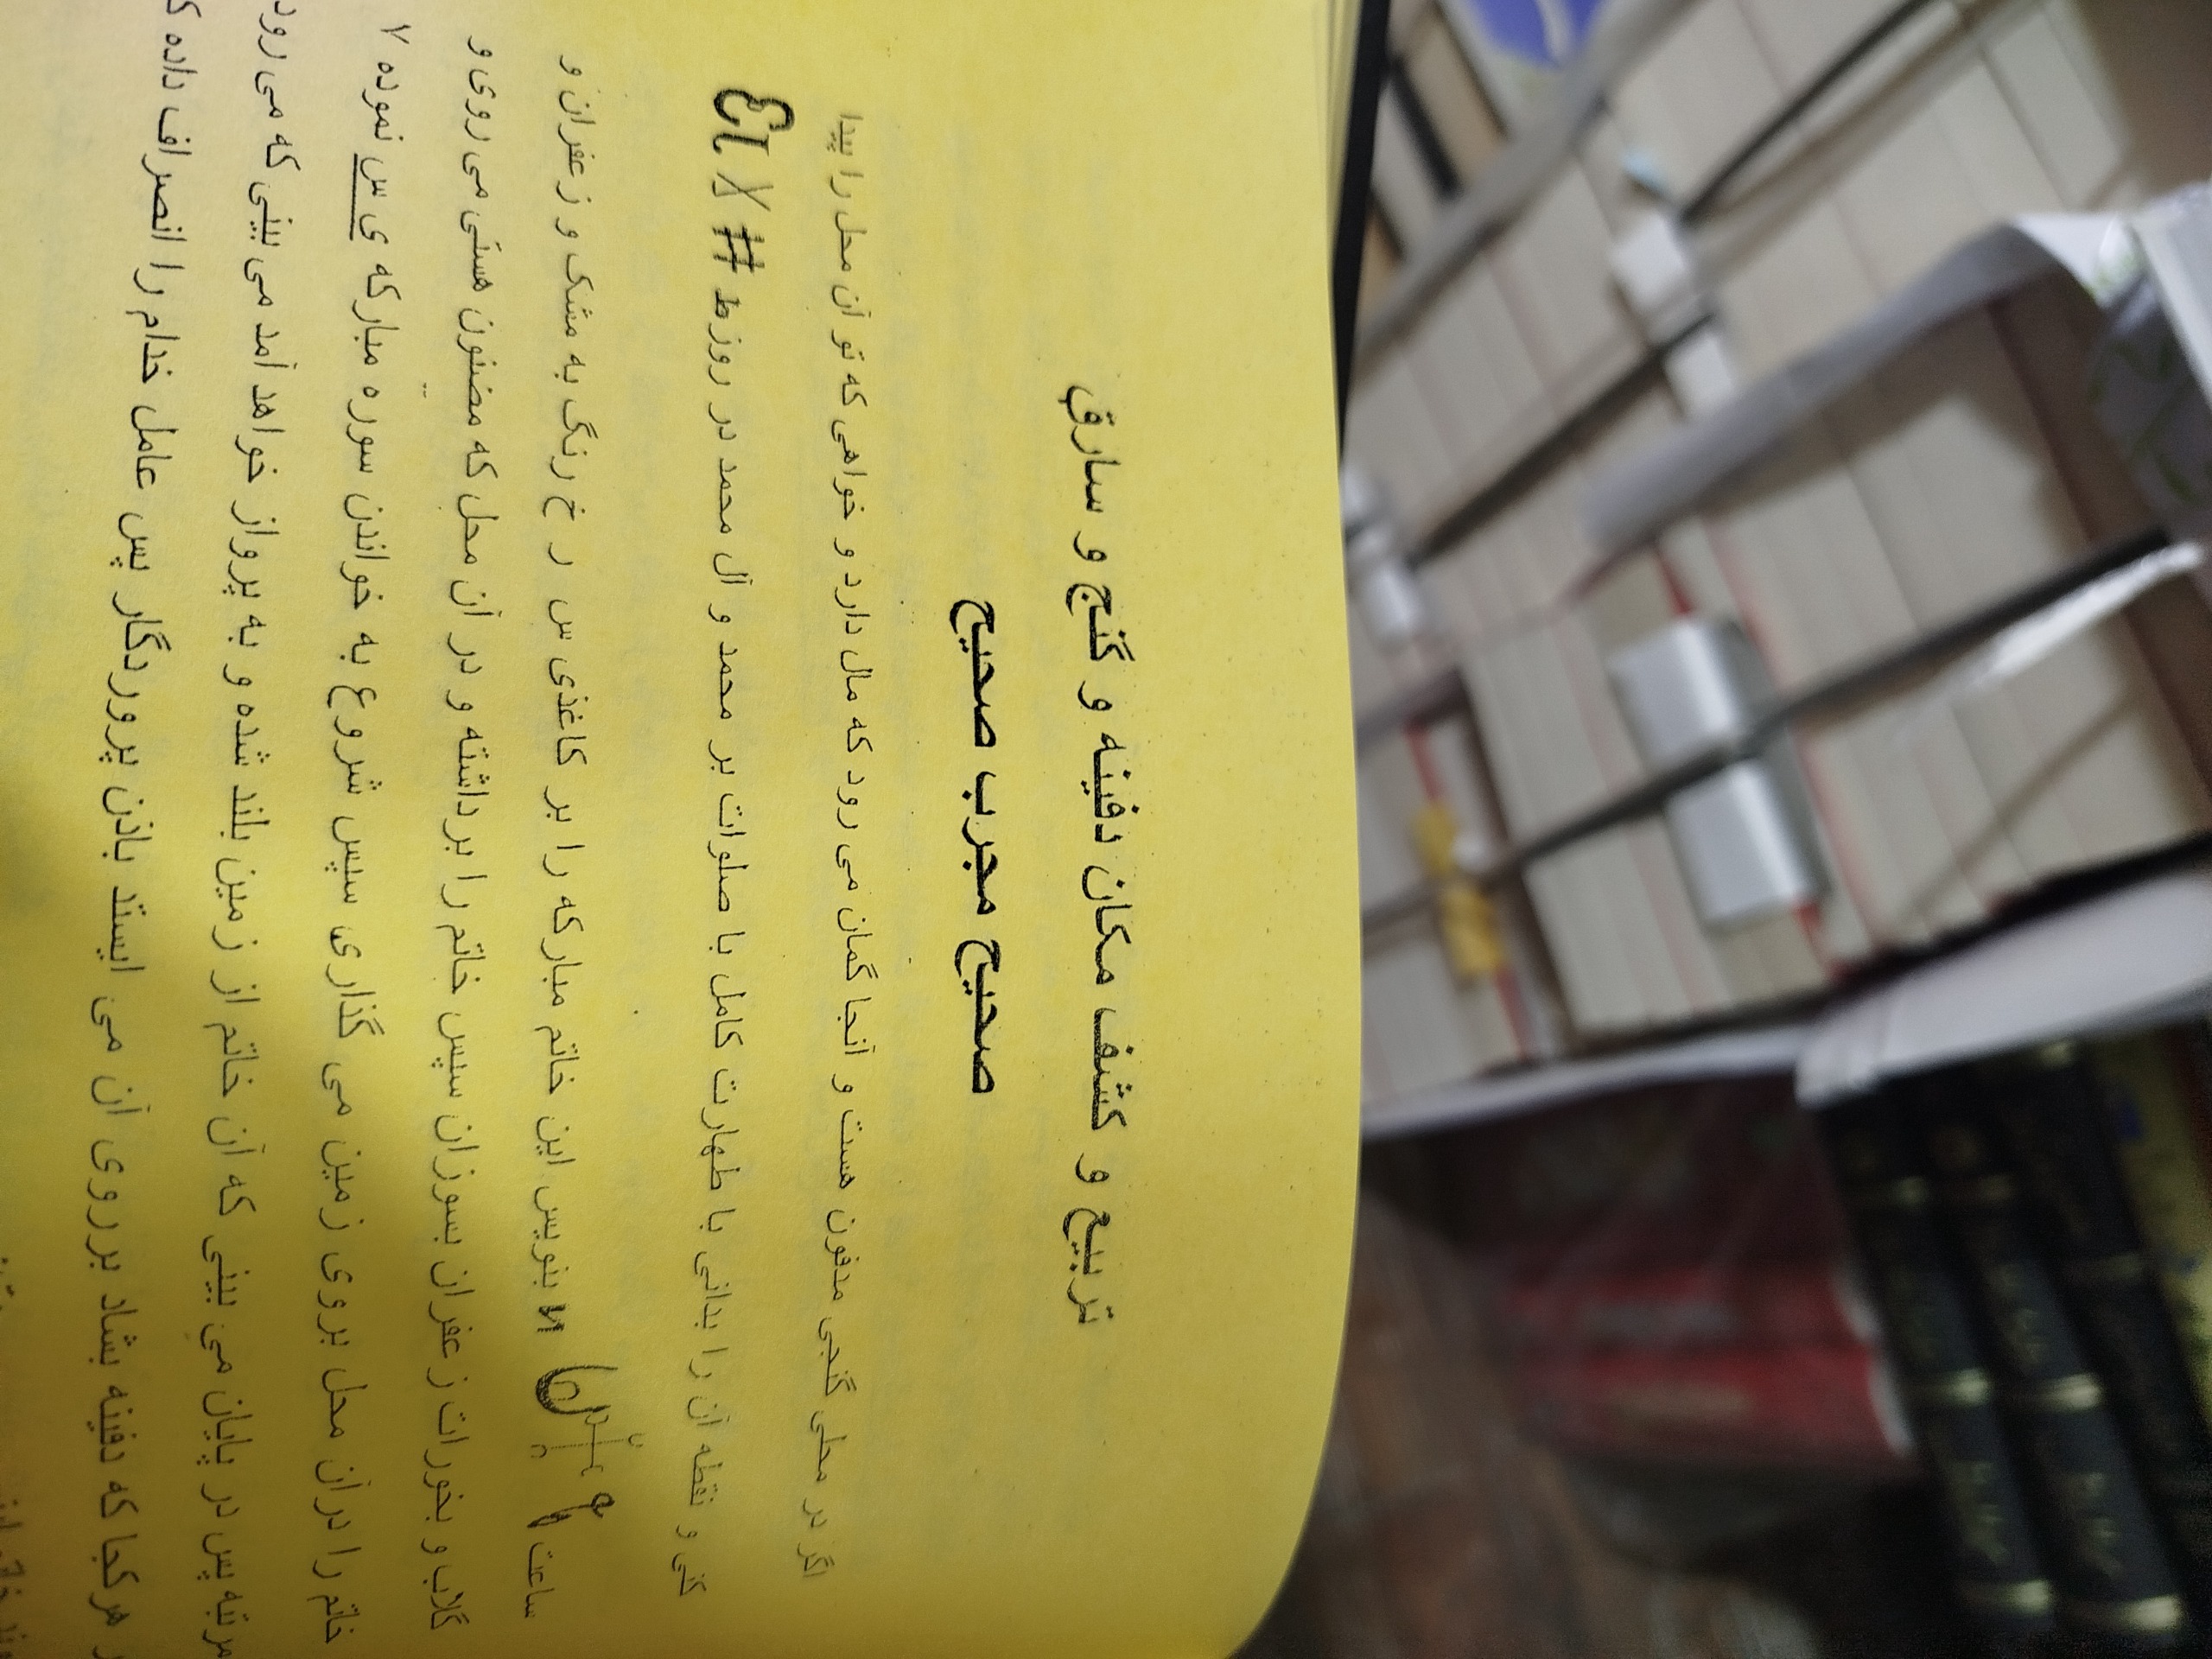 تربیع و کشف مکان دفینه و گنج و سارق
صحیح مجرب صحیح
اگر در محلی گنجی مدفون هست و آنجا گمان می رود که مال دارد و خواهی که تو آن محل را پیدا
کنی و نقطه آن را بدانی با طهارت کامل با صلوات بر محمد و آل محمد در روز ط #
ساعت بنویس این خاتم مبارکه را بر کاغذی س ر خ رنگ به مشک و زعفران و
گلاب و بخورات زعفران بسوزان سپس خاتم را برداشته و در آن محل که مضنون هستی می روی و
خاتم را در آن محل بروی زمین می گذاری سپس شروع به خواندن سوره مبارکه ی س نموده ۷
مرتبه پس در پایان می بینی که آن خاتم از زمین بلند شده و به پرواز خواهد آمد می بینی که می رود
هر کجا که دفینه بشاد بر روی آن می ایستد باذن پروردگار پس عامل خدام را انصراف داده